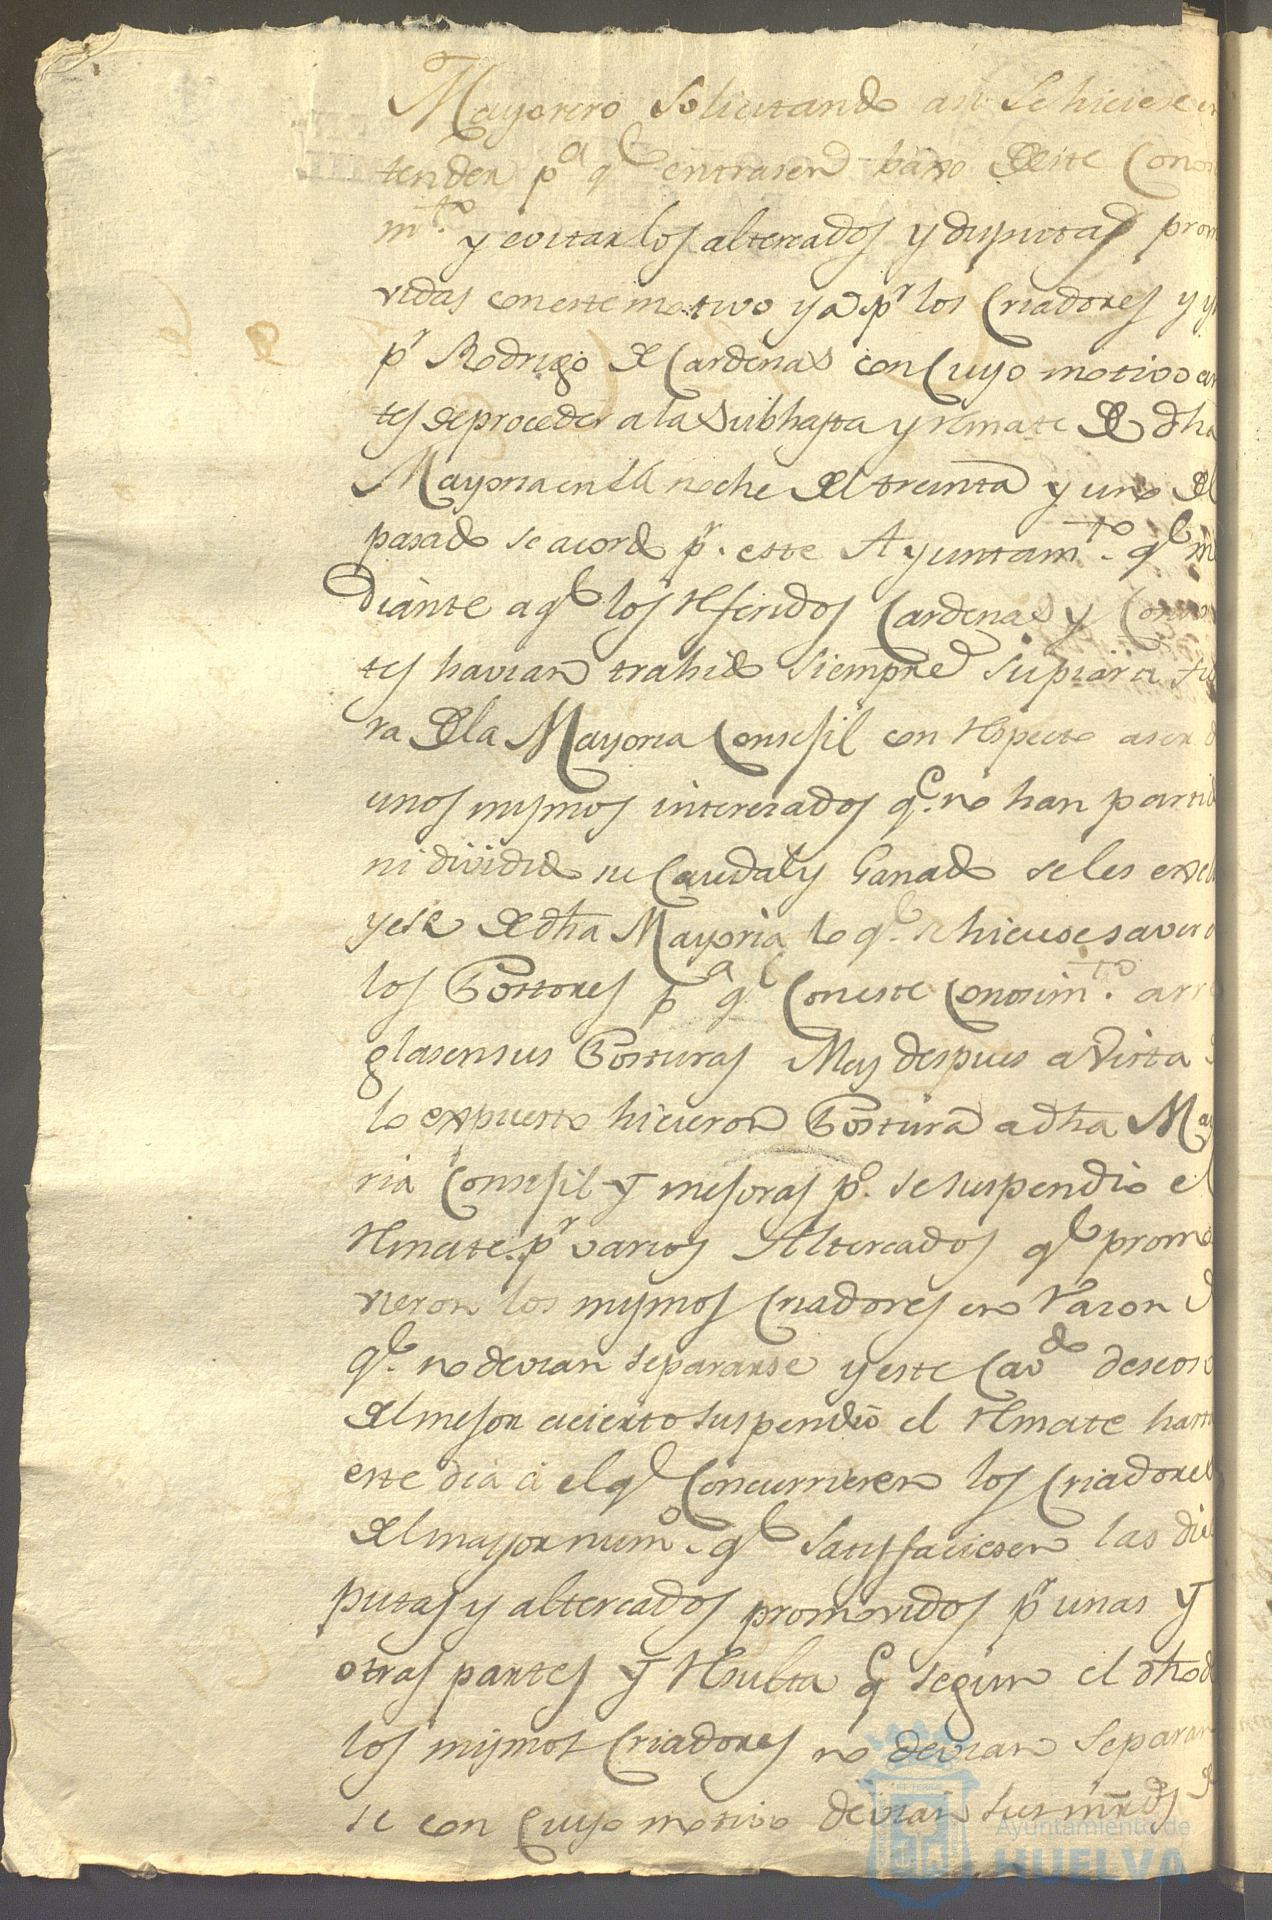 Mayorero solicitando asi se hiciese en
tender pa. ql entrasen baxo de este Conoci
mto. y evitar los altercados y disputas promo
vidas con este motivo ya pr los Criadores y ya
pr Rodrigo de Cardenas con Cuyo motivo an
tes de proceder a la Subhasta y Rmate de dha
Mayoria en la noche del treinta y uno del
pasado se acordo pr. este Ayuntamto. ql me
diante a ql los Rferidos Cardenas y Consor
tes havian trahido siempre su piara fue
ra de la Mayoria Consejil con Rspecto a ser
unos mismos interezados qe. no han partido
ni dividido su Caudal y Ganado se les exclu
yese de dha Mayoria lo ql. se hiciese saver a
los Postores pa ql Con este Conosimto. arre
glasen sus Posturas Mas despues a vista de
lo expuesto hicieron Postura a dha Mayo
ria Consejil y mejoras po. se suspendio el
Rmate pr varios Altercados ql promo
vieron los mismos Criadores en Razon de
ql. no devian separarse y este Cavdo deseoso
del mejor acierto suspendió el Rmate hasta
este dia á el ql Concurrieren los Criadores
del mayor numo. ql satisfaciesen las dis
putas y altercados promovidos pr unas y
otras partes y Rsulta q segun el dho de
los mismos Criadores no devian separar
se con Cuyo motivo devian sus mrds
Ayuntamiento de
HUELVA